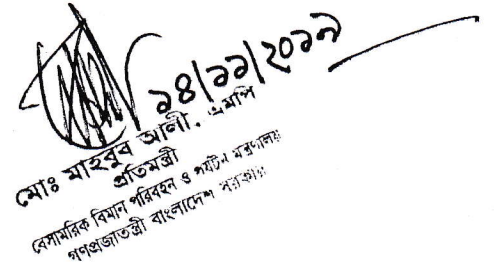 ১৪/১১/২০১৯
মোঃ মাহবুব আলী, এমপি
প্রতিমন্ত্রী
বেসামরিক বিমান পরিবহন ও পর্যটন মন্ত্রণালয়
গণপ্রজাতন্ত্রী বাংলাদেশ সরকার